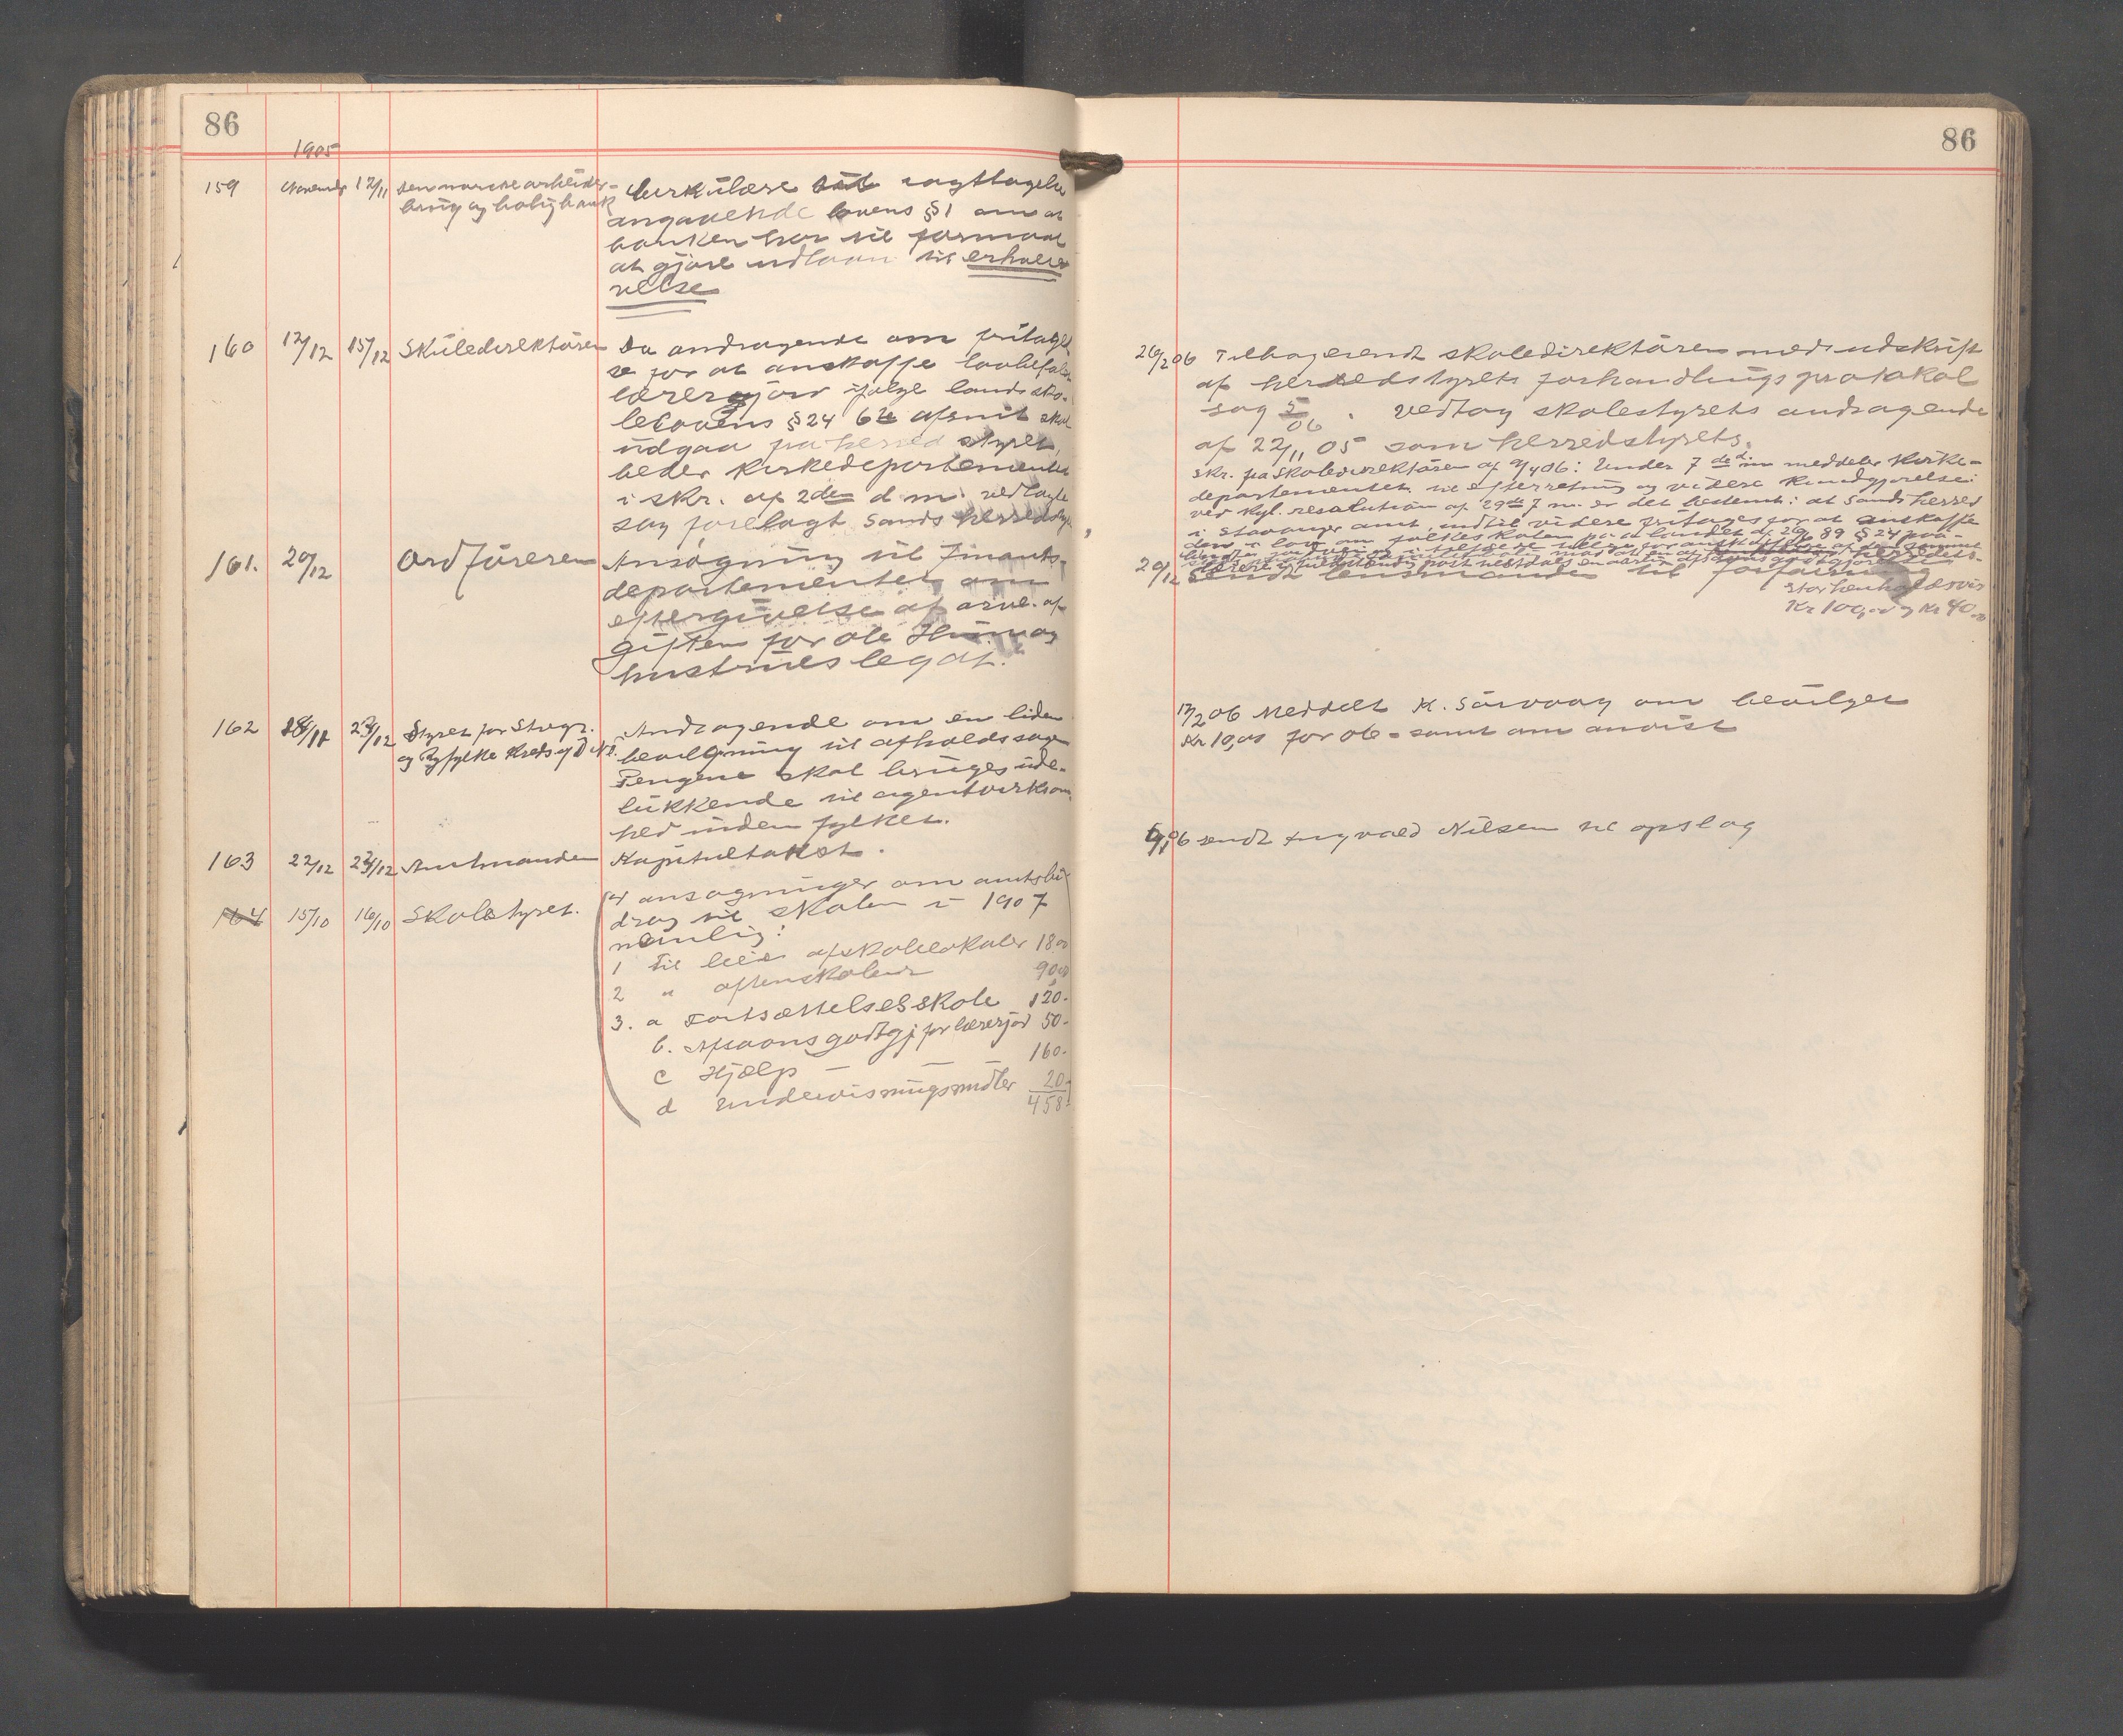 86
1905
159 November 12/11 Den norske arbeider-
brug og boligbank
Cirkulære til iagttagelse
angaaende lovens § 1 om at
banken har til formaal
at gjøre udlaan til erhver-
velse
160 12/12 15/12 Skuledirektøren Da andragende om fritagel
se for at anskaffe lovbefalet
lærerjord ifølge lands sko-
lelovens § 24 6te afsnit skal
udgaa fra herredstyret,
beder Kirkedepartementet
i skr. af 2den d. m. vedlagte
sag forelagt Sands herredsty
161. 20/12 Ordføreren Ansøgning til Finants-
departementet om
eftergivelse af arve-af-
giften for Ole
hustrues legat.
162 28/11 23/12 Styret for Stvgr.
og Ryfylke Kreds af D.N.T.
Andragende om en liden
bevilgning til afholdssagen
Pengene skal bruges ude-
lukkende til agentvirksom
hed inden fylket.
163 22/12 23/12 Amtmanden Kapitultakst.
164 15/10 16/10 Skolestyret.
4 ansøgninger om amtsbi-
drag til skolen i 1907
nemlig:
1 Til leie af skolelokaler 18.00
2 " aftenskolen 90.00
3. a Fortsættelsesskole 120.
b. Afsavnsgodtgj for lærerjord 50.
c Hjælp — — 160.
d Undervisningsmidler 20.
458.
86
26/2 06 Tilbagesendt skoledirektøren med udskrift
af herredstyrets forhandlingsprotokol
sag 5/06. Vedtog skolestyrets andragende
af 22/11 05 som herredstyrets.
Skr. fra Skoledirektøren af 9/4 06: Under 7de d. m meddeler Kirke-
departementet til efterretning og videre Kundgjørelse:
ved kgl. resolution af 29de f. m. er det bestemt: at Sands herred
i Stavanger amt indtil videre fritages for at anskaffe
den i lov om folkeskolen paa landet af 26/6 89 § 24 paa-
20/12 Sendt lensmanden til forføining
Kr 100,00 og Kr 40.00
17/2 06 Meddelt K. Sørvaag om bevilget
Kr 10,00 for 06 - samt om anvist
06 sendt Ingvald Nilsen til opslag